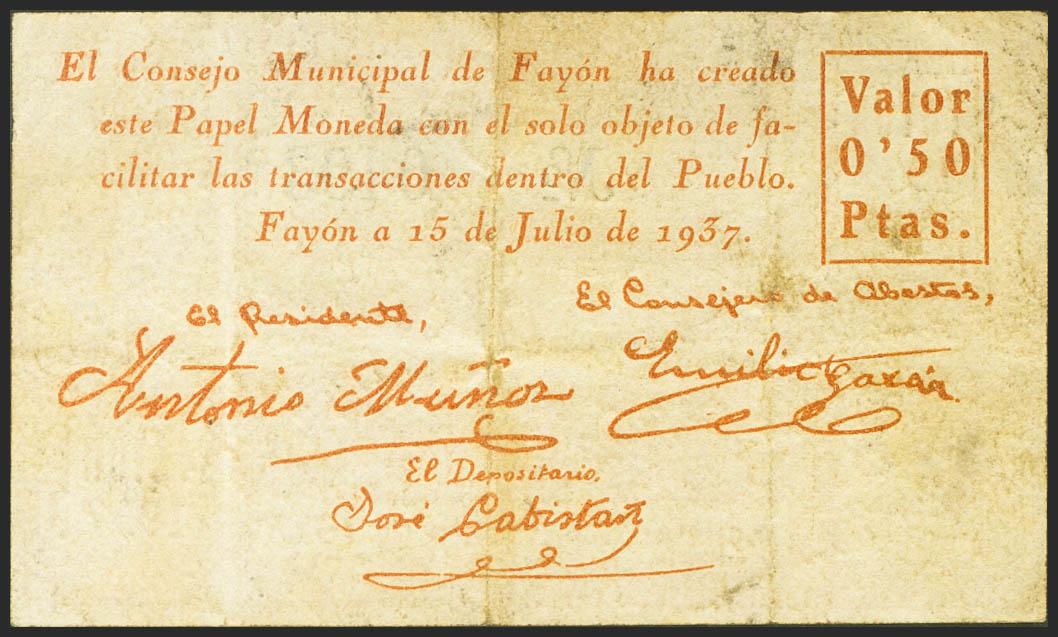 El Consejo Municipal de Fayón ha creado
este Papel Moneda con el solo objeto de fa-
cilitar las transacciones dentro del Pueblo.
Fayón a 15 de Julio de 1937.
Valor
0'50
Ptas.
El Presidente,
Antonio Muñoz
El Consejero de Abastos,
Emilio
El Depositario,
José Cabistañ